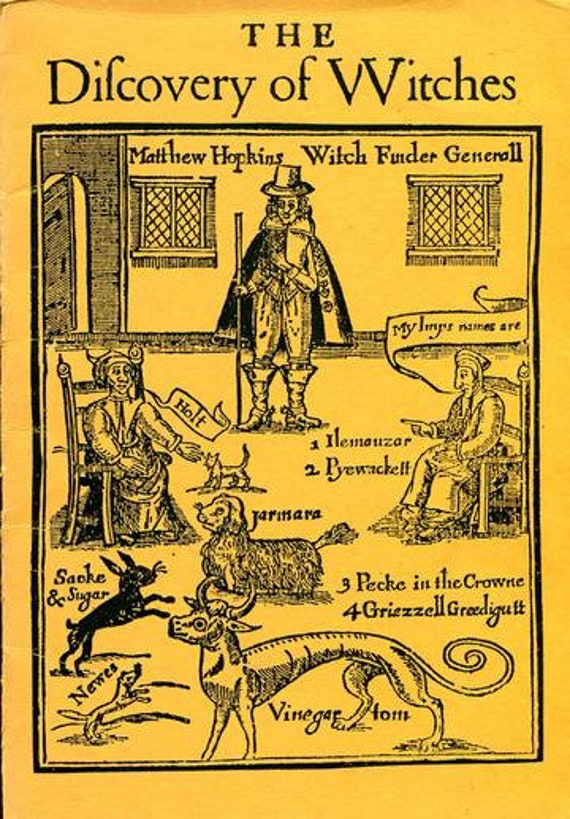 THE
Diſcovery of Witches
Matthew Hopkins Witch Finder Generall
My Imps names are
Holt
1 Ilemauzar
2 Pyewackett
Jarmara
Sacke
& Sugar
3 Pecke in the Crowne
4 Griezzell Greedigutt
Newes
Vinegar tom